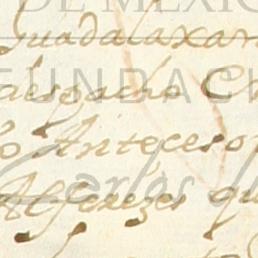 DE MÉXICO
Guadalaxar
FUNDACI
despacho
o Anteceso
Carlos
Alferezes qu